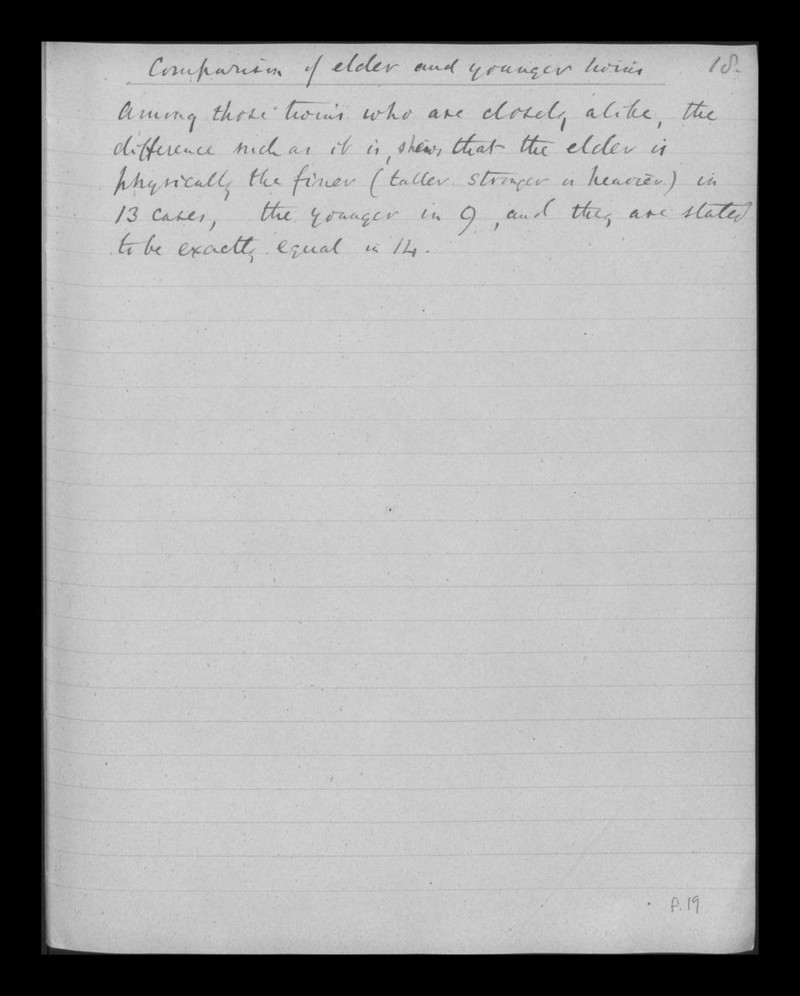 Comparison of elder and younger twins 18.
Among those twins who are closely alike, the
difference such as it is, shews that the elder is
physically the finer (taller stronger or heavier) in
13 cases, the younger in 9, and they are stated
to be exactly equal in 14.
P.19